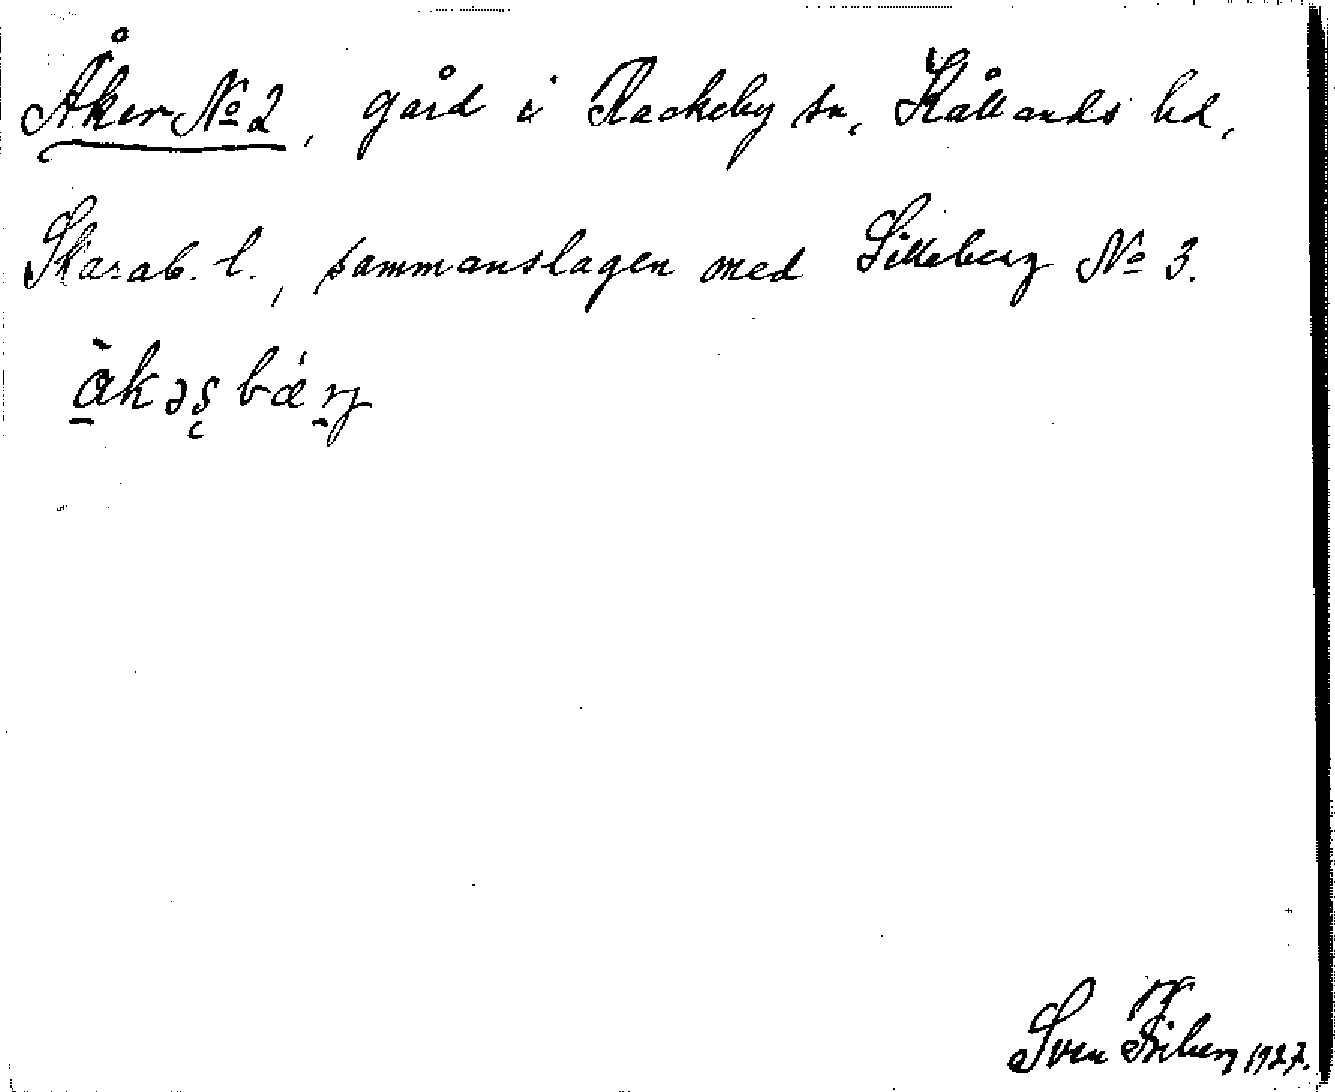 Åker No 2, gård i Rackeby sn, Kållands hd,
Skarab. l., sammanslagen med Silleberg No 3.
Sven Friberg 1927.